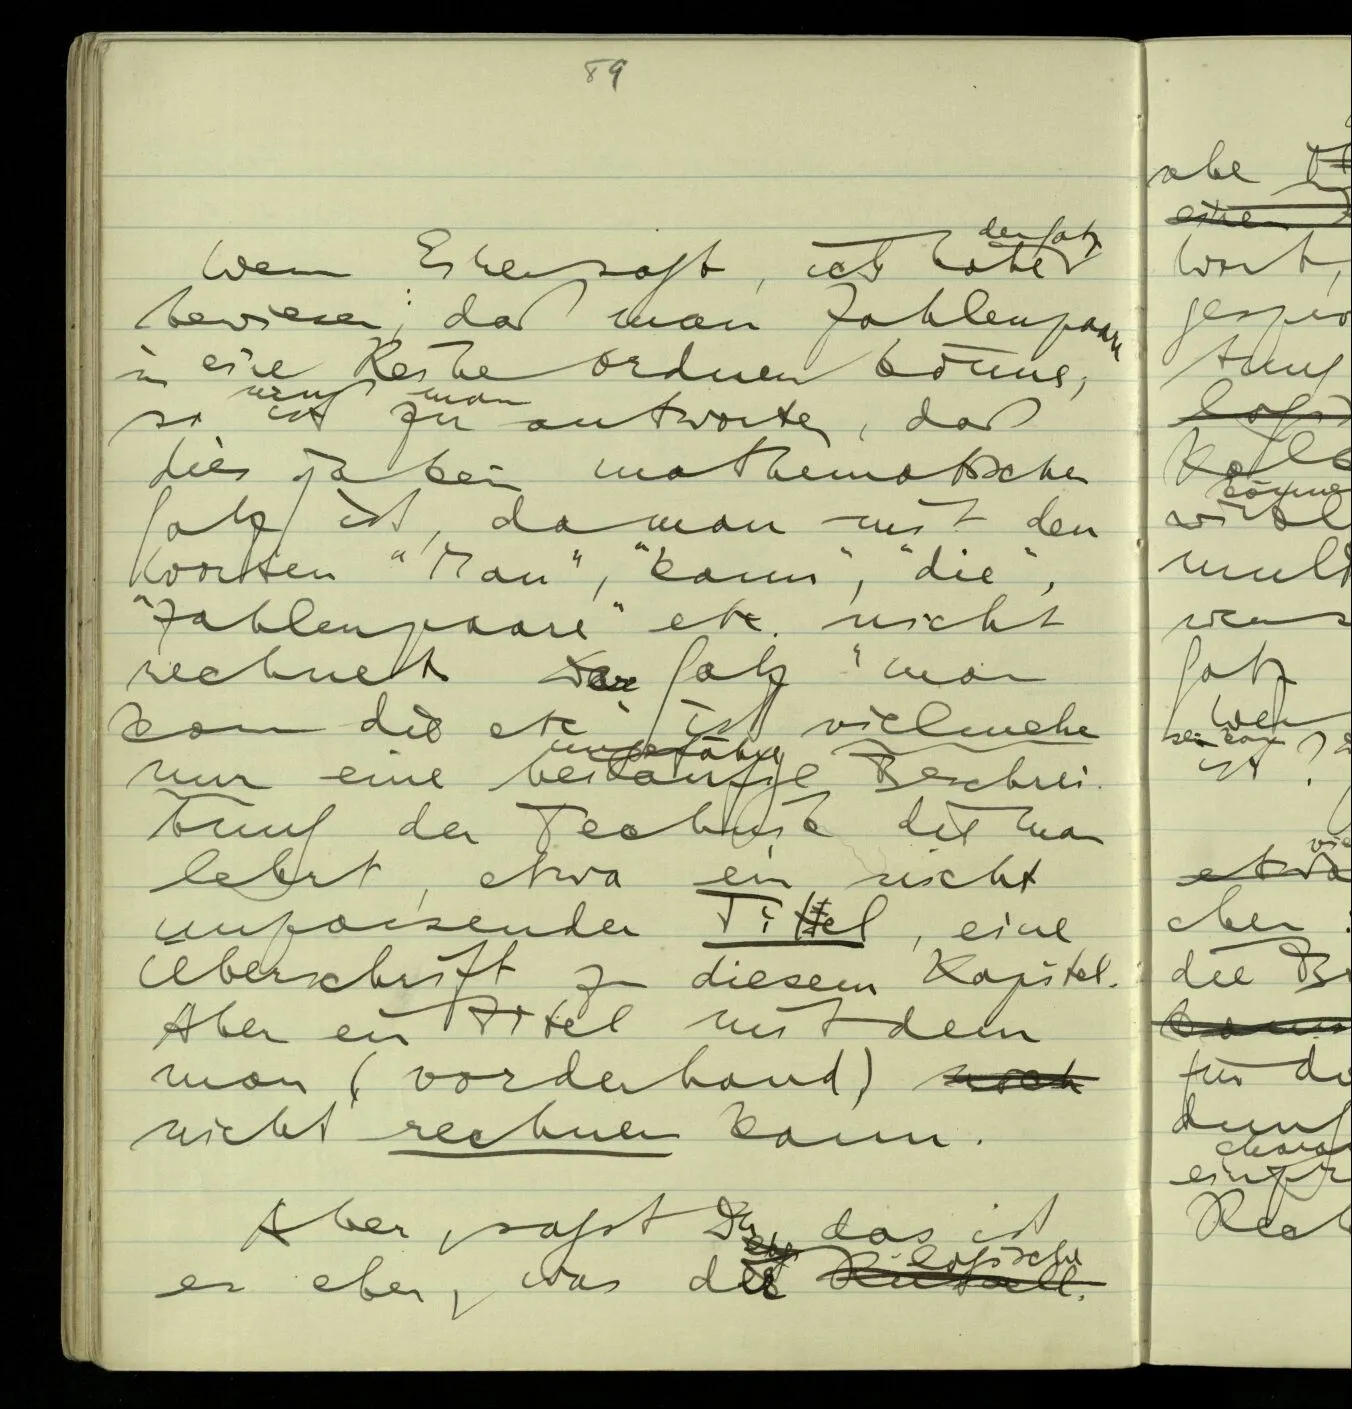 89
Wenn Einer sagt, ich habe den Satz
bewiesen, daß man Zahlenpaare
in eine Reihe ordnen könne,
so ist muß man zu antworten, daß
dies ja kein mathematischer
Satz ist, da man mit den
Worten "Man", "kann", "die",
"Zahlenpaare" etc. nicht
rechnet. Der Satz "man
kann die etc" ist vielmehr
nur eine beiläufige ungefähre Beschrei-
bung der Technik die man
lehrt, etwa ein nicht
unpassender Titel, eine
Überschrift zu diesem Kapitel.
Aber ein Titel mit dem
man (vorderhand) noch
nicht rechnen kann.
Aber, sagst Du, das ist
es eben, was der logische Kalkül
abe
einen
Wort,
tung
mult
Satz
ist?
etwa
eben
die
kann
für
dung